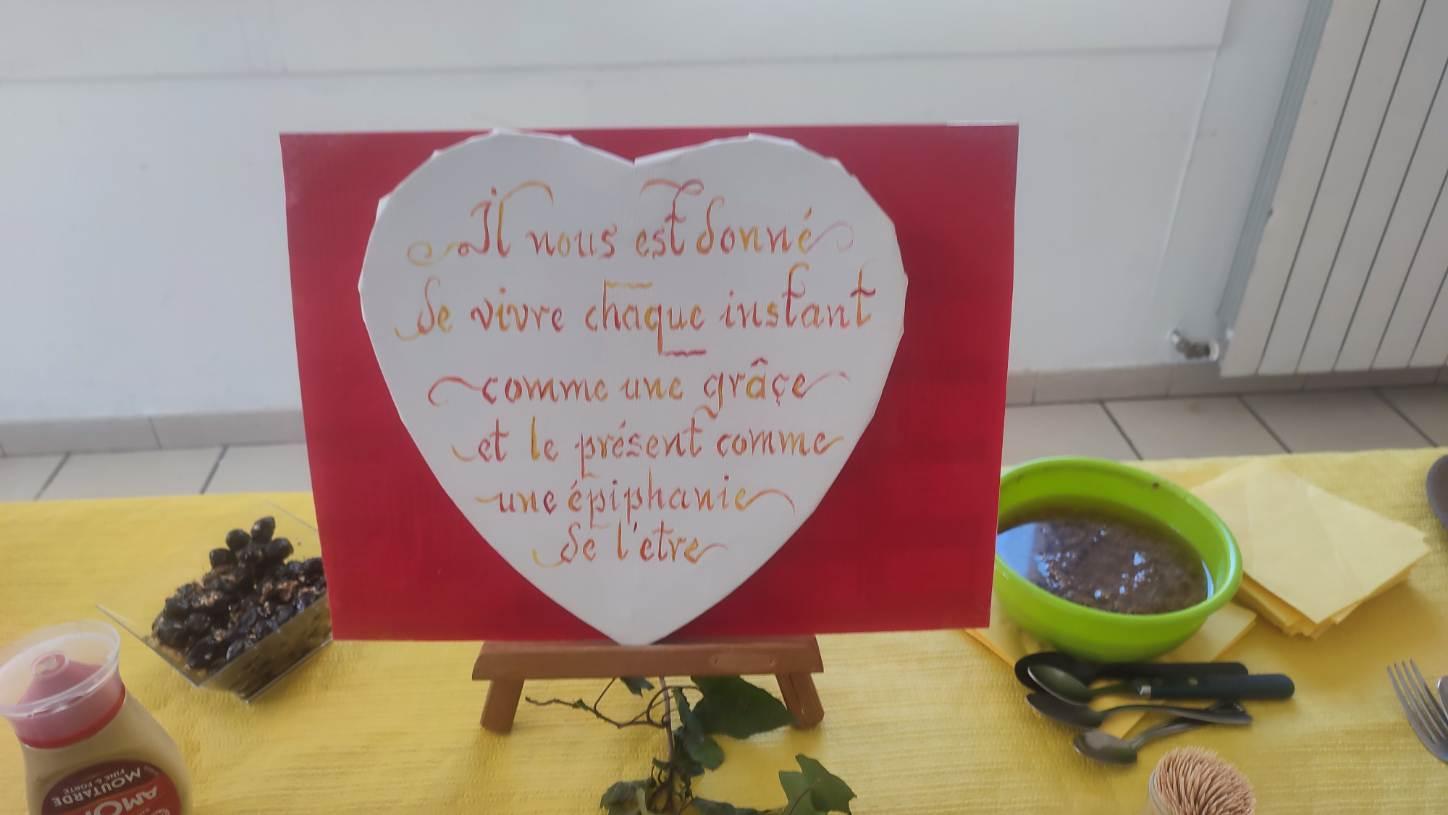 Il nous est donné
de vivre chaque instant
comme une grâçe
et le présent comme
une épiphanie
de l'etre
MOUTARDE
FINE & FORTE